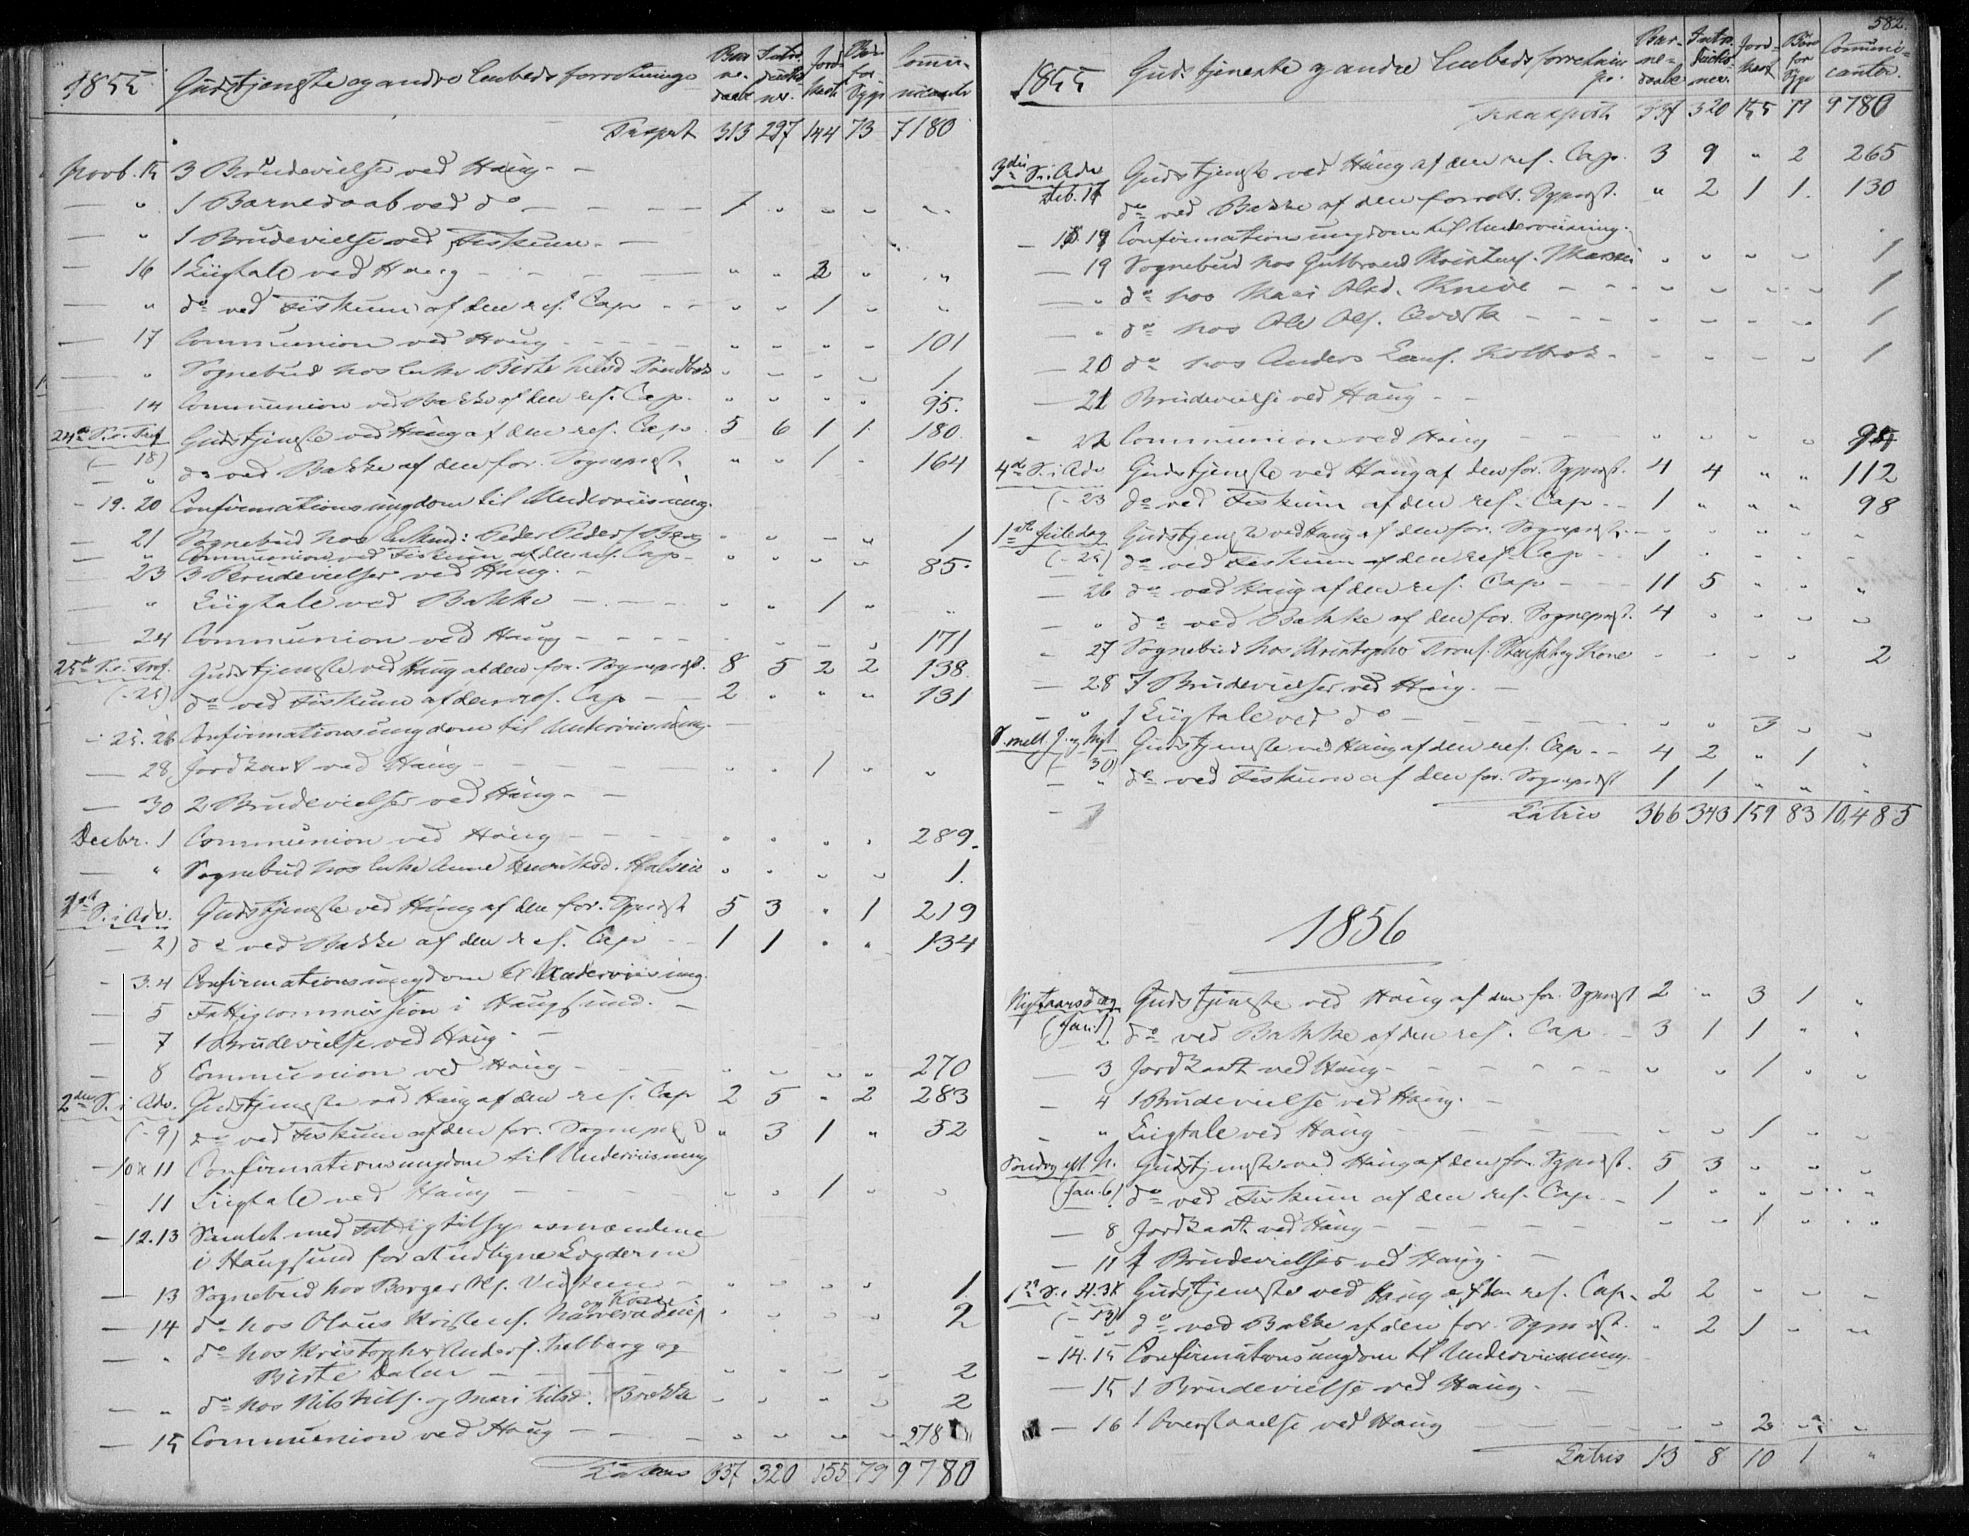 1855 Gudstjeneste og andre Embeds forretninger Bar-ne-daab Introduktioner Jord-kast Bes. for Syge Communicanter
Transport 313 297 144 73 7180
Novb. 15 3 Brudevielser ved Haug -
— " 1 Barnedaab ved do - - - 1 " " " "
— " 1 Brudevielse ved Fiskum -
— 16 1 Liigtale ved Haug - - - " " 2 " "
— " do ved Fiskum af den res. Cap - - " " 1 " "
— 17 Communion ved Haug - - - " " " " 101
— " Sognebud hos Enke Birte Nilsd. " " " " 1
— 14 Communion ved Bakke af den res. Cap. " " " " 95.
24de S. e. Tref. Gudstjeneste ved Haug af den res. Cap. 5 6 1 1 180
(- 18) do ved Bakke af den for. Sognepræst. " " 1 - 164
- 19. 20 Confirmationsungdom til Underviisning.
— 21 Sognebud hos Peder Peders. Berg " " - " 1
— " Communion ved Fiskum af den res. Cap - " " " " 85.
23 3 Brudevielser ved Haug. -
— " Liigtale ved Bakke - - - " " 1 " "
— 24 Communion ved Haug - - - - - - " 171
25de S. e. Tref. Gudstjeneste ved Haug af den for. Sognepræst. 8 5 2 2 138.
(- 25) do ved Fiskum af den res. Cap — 2 " " " 131
- 25. 26 Confirmationsungdom til Underviisning. -
— 28 Jordkast ved Haug - - - " " 1 " "
— 30 2 Brudevielser ved Haug - -
Decbr. 1 Communion ved Haug - - - " " " " 289.
— " Sognebud hos Enke Anne Henriksd. " " " " 1.
1ste S. i Adv. Gudstjeneste ved Haug af den for. Sgnpræst 5 3 " 1 219
— 2) do ved Bakke af den res. Cap - 1 1 " " 134
- 3. 4 Confirmationsungdom til Underviisning.
— 5 Fattigcommission i Haugsund. -
— 7 1 Brudevielse ved Haug - -
— 8 Communion ved Haug - - - " " " " 270
2den S. i Adv. Gudstjeneste ved Haug af den res. Cap 2 5 " 2 283
(- 9) do ved Fiskum af den for. Sognepræst " 3 1 " 52
- 10 & 11 Confirmationsungdom til Underviisning
— 11 Liigtale ved Haug - - - " " 1 " "
— 12. 13 Samlet med Fattigtilsynsmændene
i Haugsund for at udligne Lægderne
— 13 Sognebud hos Borger " " " " 1
— 14 do hos Olaus Kristens. og Kone " " " " 2
— " do hos Kristopher Anders. og
Birte Dalen - - - " " " " 2
— " do hos Nils Nils. og Mari Nilsd. " " " " 2
— 15 Communion ved Haug - - - " " " " 278
Latus 337 320 155 79 9780
582.
1855 Guds tjeneste og andre Embeds forretninger. Bar-ne-daab Introductioner Jord-kast Bes. for Syge Communi-canter.
Transport 337 320 155 79 9780
3die S. i Adv. Gudstjeneste ved Haug af den res. Cap. 3 9 " 2 265
Deb. 16 do ved Bakke af den forrett. Sgnpræst. " 2 1 1 130
— 18 19 Confirmationsungdom til Underviisning.
— 19 Sognebud hos Gulbrand " " " " 1
— " do hos Mari Olsd. - - - " " " " 1
— " do hos Ole Ols. - - - " " " " 1
— 20 do hos Anders - " " " " 1
— 21 Brudevielse ved Haug - -
" 22 Communion ved Haug - " " " "
4de S. i Adv Gudstjeneste ved Haug af den for. Sgnpræst. 4 4 " " 112
(- 23 do ved Fiskum af den res. Cap - - 1 " " " 98
1ste Juledag Gudstjeneste ved Haug af den for. Sognepræst. - - " " " "
(- 25) do ved Fiskum af den res. Cap - - 1 " " " "
— 26 do ved Haug af den res. Cap - - - 11 5 " " "
— " do ved Bakke af den for. Sognepræst. 4 " " " "
- 27 Sognebud hos Kristopher Kone " " " " 2
— 28 7 Brudevielser ved Haug. -
— " 1 Liigtale ved do - - - " " 3 " "
S. mell. J. og Nyt. Gudstjeneste ved Haug af den res. Cap - - 4 2 " 1 "
(- 30) do ved Fiskum af den for. Sognepræst 1 1 " " "
Latus 366 343 159 83 10,485
1856
Nytaarsdag Gudstjeneste ved Haug af den for. Sgnpræst 2 " 3 1 "
(Jan. 1) do ved Bakke af den res. Cap - - 3 1 1 " "
— 3 Jordkast ved Haug - - - " " 1 " "
— 4 1 Brudevielse ved Haug. -
— " Liigtale ved Haug - - - " " 1 " "
Søndag eft. N. Gudstjeneste ved Haug af den for. Sgnpræst. 5 3 " " "
(Jan. 6) do ved Fiskum af den res. Cap. - 1 " " " "
— 8 Jordkast ved Haug - - - " " 1 " "
— 11 Brudevielser ved Haug. -
1ste S. e. H. 3 K. Gudstjeneste ved Haug af den res. Cap. 2 2 " " "
(- 13) do ved Bakke af den for. Sgnpræst. " 2 1 " "
- 14. 15 Confirmationsungdom til Underviisning.
— 15 1 Brudevielse ved Haug. -
— 16 1 ved Haug - - - " " 2 " "
Latus 13 8 10 1 "